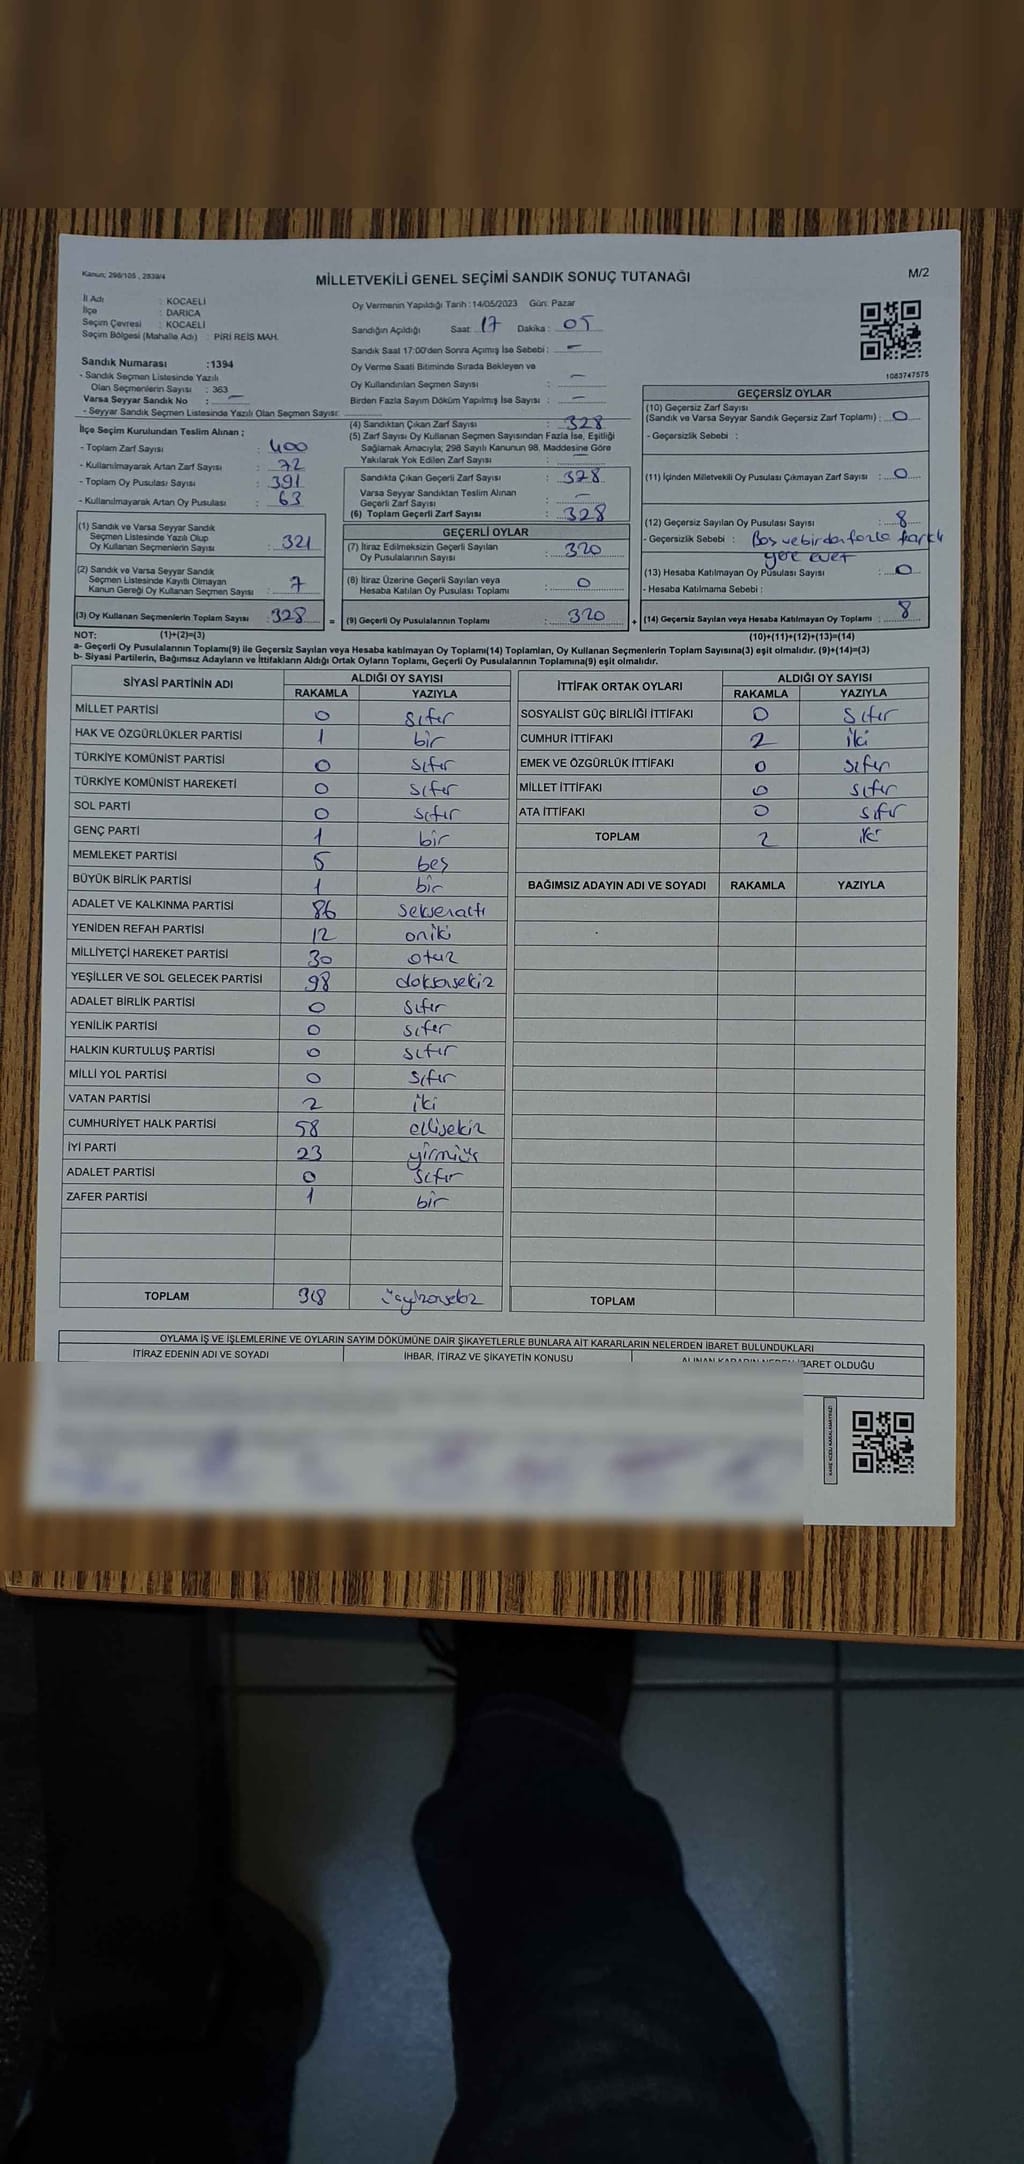 Kanun; 298/105 , 2839/4
MİLLETVEKİLİ GENEL SEÇİMİ SANDIK SONUÇ TUTANAĞI
M/2
İl Adı : KOCAELİ
İlçe : DARICA
Seçim Çevresi : KOCAELİ
Seçim Bölgesi (Mahalle Adı) : PİRİ REİS MAH.
Oy Vermenin Yapıldığı Tarih : 14/05/2023 Gün: Pazar
Sandığın Açıldığı Saat: 17 Dakika : 05
Sandık Saat 17:00'den Sonra Açımış İse Sebebi : -
Oy Verme Saati Bitiminde Sırada Bekleyen ve
Oy Kullandırılan Seçmen Sayısı : -
Birden Fazla Sayım Döküm Yapılmış İse Sayısı : -
1083747575
Sandık Numarası :1394
- Sandık Seçmen Listesinde Yazılı
Olan Seçmenlerin Sayısı : 363
Varsa Seyyar Sandık No : -
- Seyyar Sandık Seçmen Listesinde Yazılı Olan Seçmen Sayısı:
İlçe Seçim Kurulundan Teslim Alınan ;
- Toplam Zarf Sayısı : 400
- Kullanılmayarak Artan Zarf Sayısı : 72
- Toplam Oy Pusulası Sayısı : 391
- Kullanılmayarak Artan Oy Pusulası : 63
(1) Sandık ve Varsa Seyyar Sandık
Seçmen Listesinde Yazılı Olup
Oy Kullanan Seçmenlerin Sayısı : 321
(2) Sandık ve Varsa Seyyar Sandık
Seçmen Listesinde Kayıtlı Olmayan
Kanun Gereği Oy Kullanan Seçmen Sayısı : 7
(3) Oy Kullanan Seçmenlerin Toplam Sayısı : 328
(4) Sandıktan Çıkan Zarf Sayısı : 328
(5) Zarf Sayısı Oy Kullanan Seçmen Sayısından Fazla İse, Eşitliği
Sağlamak Amacıyla; 298 Sayılı Kanunun 98. Maddesine Göre
Yakılarak Yok Edilen Zarf Sayısı : -
Sandıkta Çıkan Geçerli Zarf Sayısı : 328
Varsa Seyyar Sandıktan Teslim Alınan
Geçerli Zarf Sayısı : -
(6) Toplam Geçerli Zarf Sayısı : 328
GEÇERLİ OYLAR
(7) İtiraz Edilmeksizin Geçerli Sayılan
Oy Pusulalarının Sayısı : 320
(8) İtiraz Üzerine Geçerli Sayılan veya
Hesaba Katılan Oy Pusulası Toplamı : 0
= (9) Geçerli Oy Pusulalarının Toplamı : 320
GEÇERSİZ OYLAR
(10) Geçersiz Zarf Sayısı
(Sandık ve Varsa Seyyar Sandık Geçersiz Zarf Toplamı) : 0
- Geçersizlik Sebebi :
(11) İçinden Milletvekili Oy Pusulası Çıkmayan Zarf Sayısı : 0
(12) Geçersiz Sayılan Oy Pusulası Sayısı : 8
- Geçersizlik Sebebi : Boş ve birden fazla farklı
yere evet
(13) Hesaba Katılmayan Oy Pusulası Sayısı : 0
- Hesaba Katılmama Sebebi :
+ (14) Geçersiz Sayılan veya Hesaba Katılmayan Oy Toplamı : 8
NOT: (1)+(2)=(3) (10)+(11)+(12)+(13)=(14)
a- Geçerli Oy Pusulalarının Toplamı(9) ile Geçersiz Sayılan veya Hesaba katılmayan Oy Toplamı(14) Toplamları, Oy Kullanan Seçmenlerin Toplam Sayısına(3) eşit olmalıdır. (9)+(14)=(3)
b- Siyasi Partilerin, Bağımsız Adayların ve İttifakların Aldığı Ortak Oyların Toplamı, Geçerli Oy Pusulalarının Toplamına(9) eşit olmalıdır.
SİYASİ PARTİNİN ADI ALDIĞI OY SAYISI
RAKAMLA YAZIYLA
MİLLET PARTİSİ 0 sıfır
HAK VE ÖZGÜRLÜKLER PARTİSİ 1 bir
TÜRKİYE KOMÜNİST PARTİSİ 0 sıfır
TÜRKİYE KOMÜNİST HAREKETİ 0 sıfır
SOL PARTİ 0 sıfır
GENÇ PARTİ 1 bir
MEMLEKET PARTİSİ 5 beş
BÜYÜK BİRLİK PARTİSİ 1 bir
ADALET VE KALKINMA PARTİSİ 86 seksenaltı
YENİDEN REFAH PARTİSİ 12 oniki
MİLLİYETÇİ HAREKET PARTİSİ 30 otuz
YEŞİLLER VE SOL GELECEK PARTİSİ 98 doksansekiz
ADALET BİRLİK PARTİSİ 0 sıfır
YENİLİK PARTİSİ 0 sıfır
HALKIN KURTULUŞ PARTİSİ 0 sıfır
MİLLİ YOL PARTİSİ 0 sıfır
VATAN PARTİSİ 2 iki
CUMHURİYET HALK PARTİSİ 58 ellisekiz
İYİ PARTİ 23 yirmiüç
ADALET PARTİSİ 0 sıfır
ZAFER PARTİSİ 1 bir
TOPLAM 318 üçyüzonsekiz
İTTİFAK ORTAK OYLARI ALDIĞI OY SAYISI
RAKAMLA YAZIYLA
SOSYALİST GÜÇ BİRLİĞİ İTTİFAKI 0 sıfır
CUMHUR İTTİFAKI 2 iki
EMEK VE ÖZGÜRLÜK İTTİFAKI 0 sıfır
MİLLET İTTİFAKI 0 sıfır
ATA İTTİFAKI 0 sıfır
TOPLAM 2 iki
BAĞIMSIZ ADAYIN ADI VE SOYADI RAKAMLA YAZIYLA
TOPLAM
OYLAMA İŞ VE İŞLEMLERİNE VE OYLARIN SAYIM DÖKÜMÜNE DAİR ŞİKAYETLERLE BUNLARA AİT KARARLARIN NELERDEN İBARET BULUNDUKLARI
İTİRAZ EDENİN ADI VE SOYADI İHBAR, İTİRAZ VE ŞİKAYETİN KONUSU ALINAN KARARIN NEDEN İBARET OLDUĞU